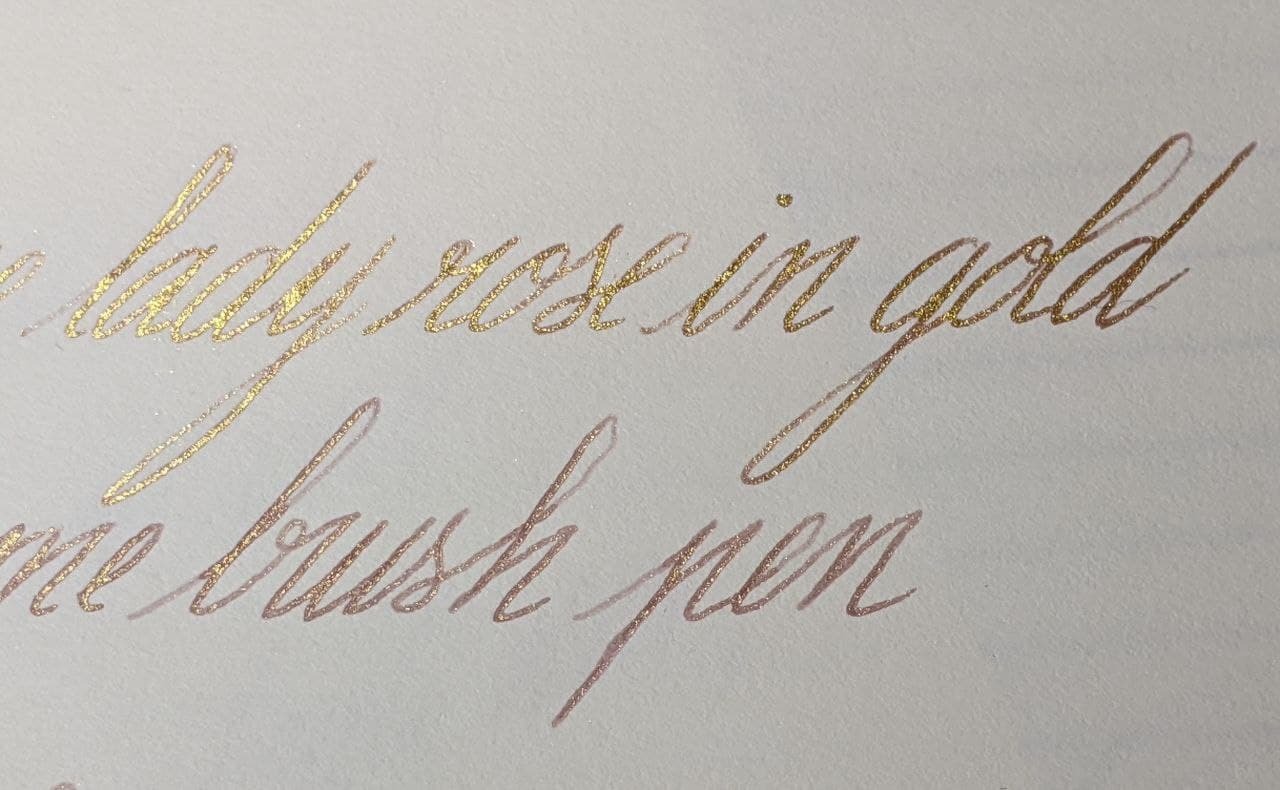 lady rose in gold
brush pen